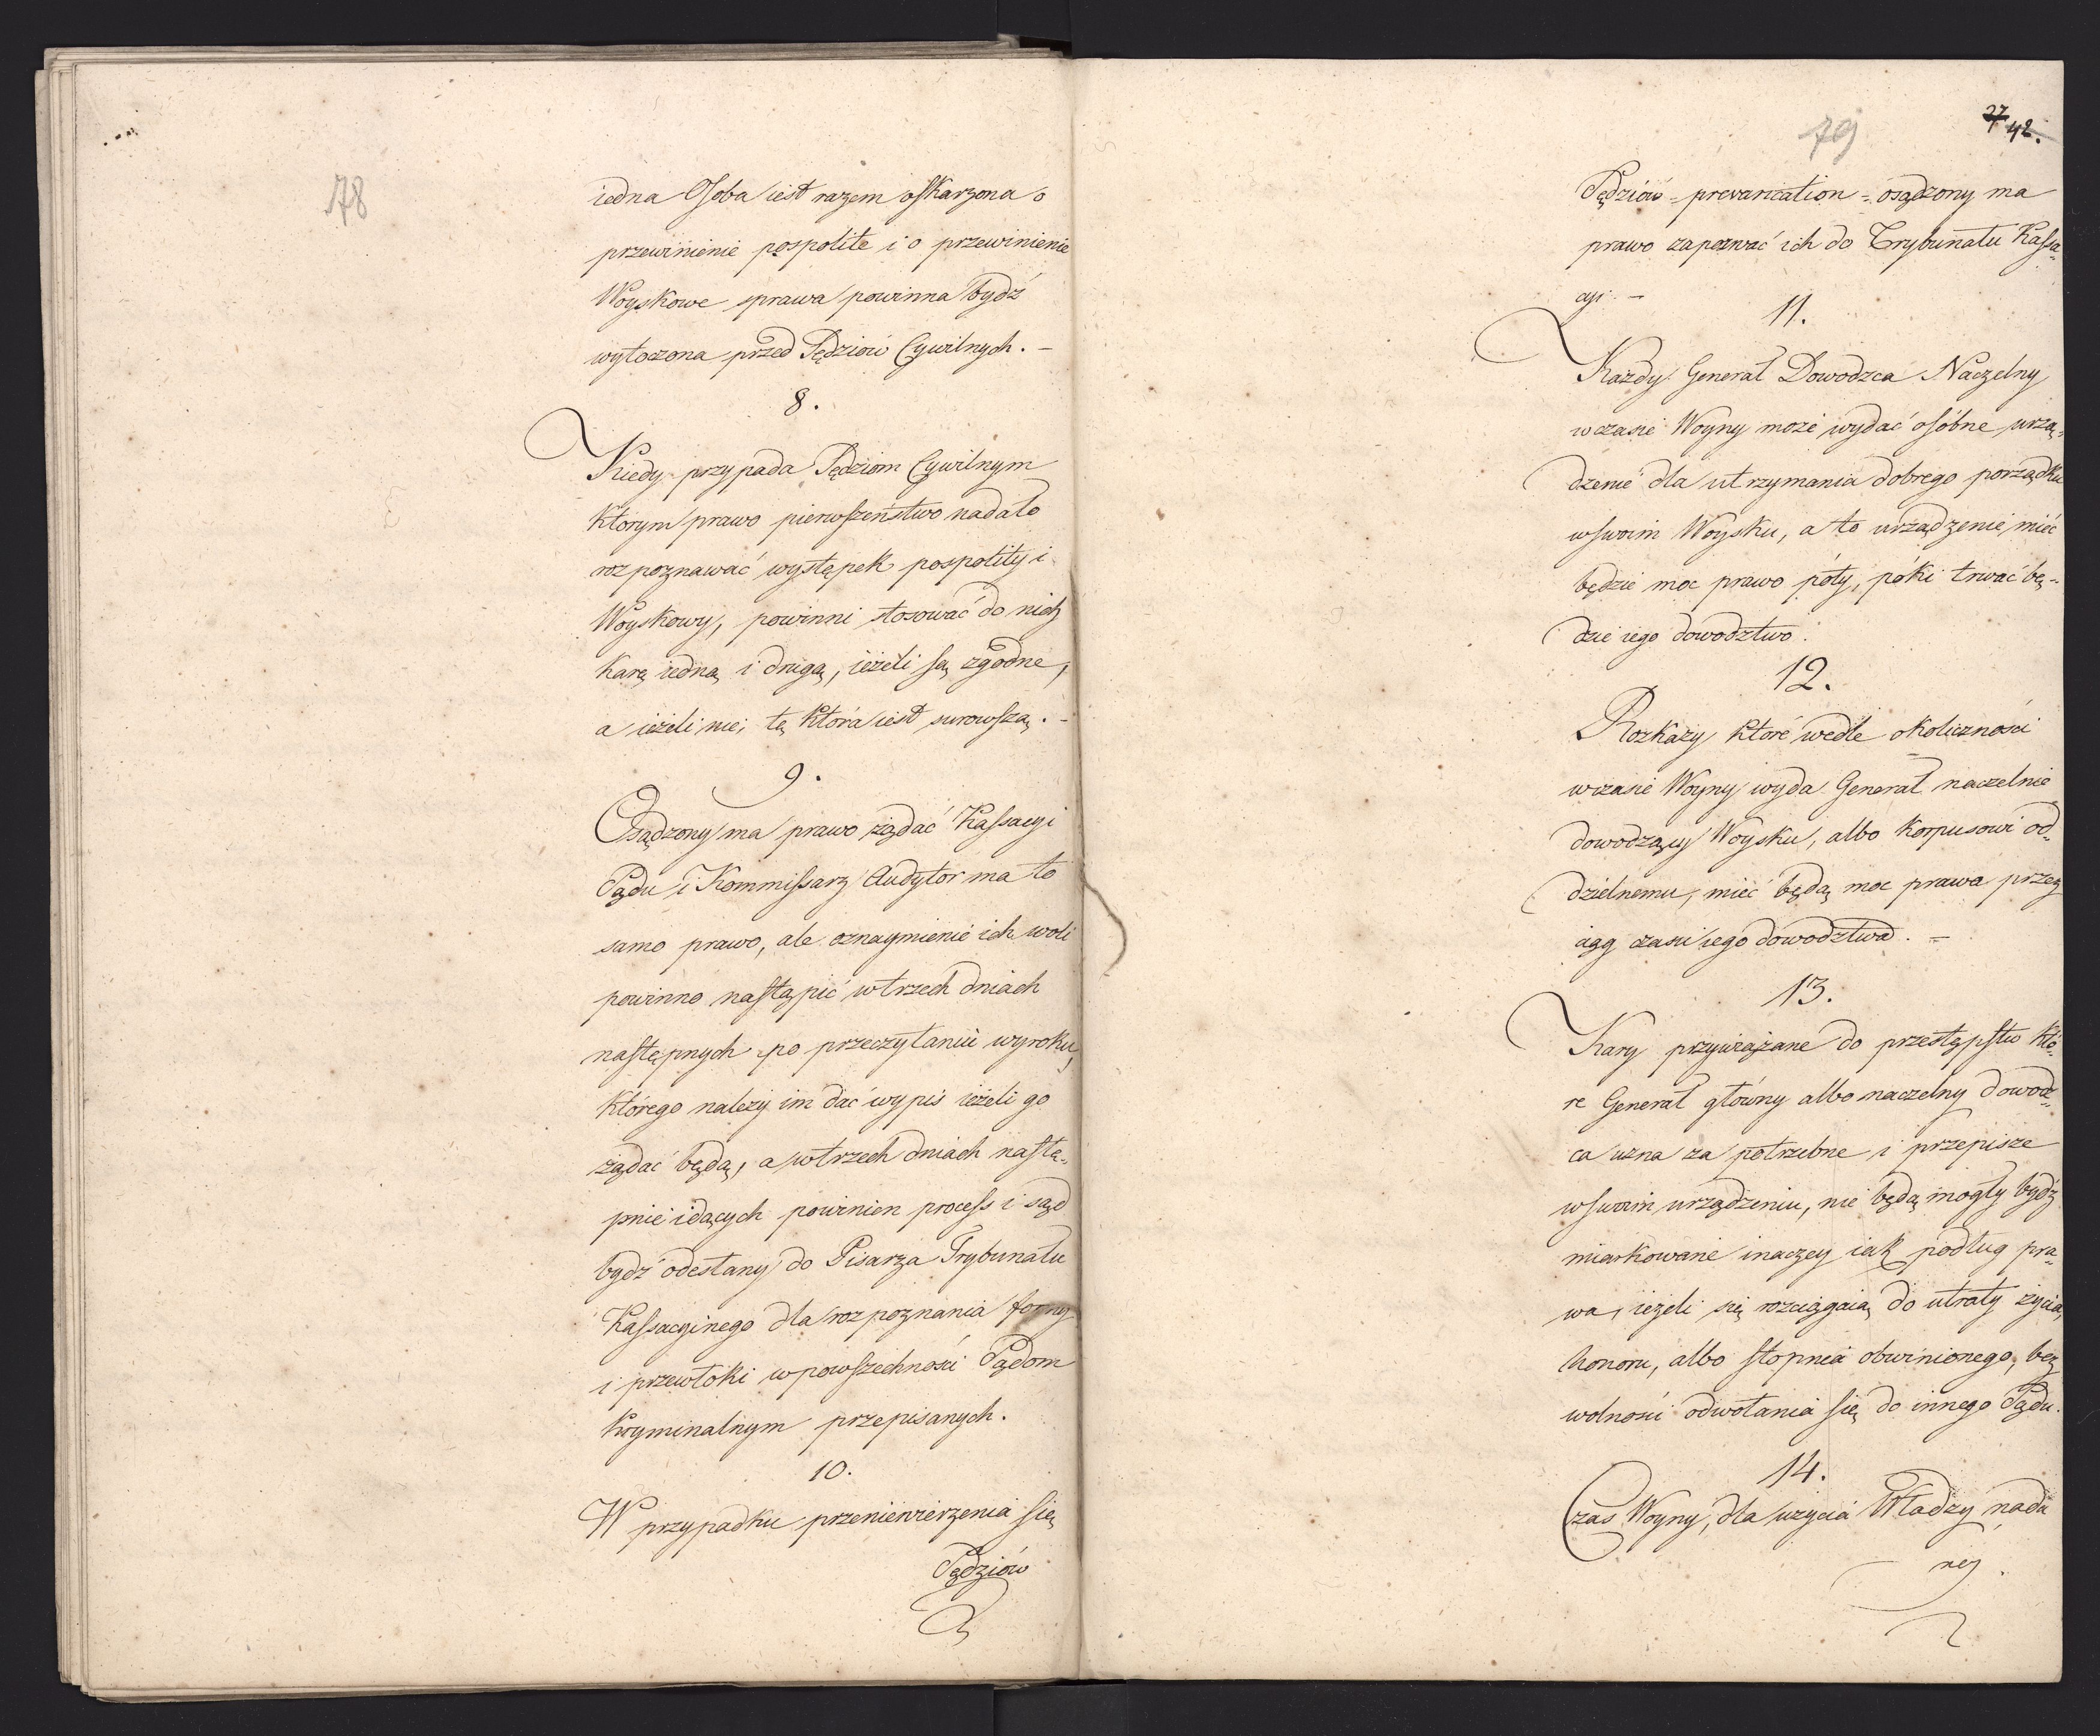 78
iedna Osoba iest razem oskarzona o
przewinienie pospolite i o przewinienie
Woyskowe sprawa powinna bydź
wytoczona przed Sędziów Cywilnych. –
8.
Kiedy przypada Sędziom Cywilnym
którym prawo pierwszeństwo nadało
rozpoznawać występek pospolity i
Woyskowy, powinni stosować do nich
karę iedną i drugą, ieżeli są zgodne,
a ieżeli nie, tę która iest surowszą. –
9.
Osądzony ma prawo żądać Kassacyi
Sądu i Kommissarz Audytor ma to
samo prawo, ale oznaymienie ich woli
powinno nastąpić w trzech dniach
następnych po przeczytaniu wyroku,
którego należy im dać wypis ieżeli go
żądać będą, a w trzech dniach nastę„
pnie idących powinien process i sąd
bydź odesłany do Pisarza Trybunału
Kassacyinego dla rozpoznania formy
i przewłoki w powszechności Sądom
kryminalnym przepisanych.
10.
W przypadku przeniewierzenia się
Sędziów
79
27 42.
Sędziów = prevarication = osądzony ma
prawo zapozwać ich do Trybunału Kassa„
cyi. –
11.
Każdy Generał Dowodzca Naczelny
w czasie Woyny może wydać osóbne urzą„
dzenie dla utrzymania dobrego porządku
w swoim Woysku, a to urządzenie mieć
będzie moc prawo póty, póki trwać bę„
dzie iego dowodztwo.
12.
Rozkazy które wedle okoliczności
w czasie Woyny wyda Generał naczelnie
dowodzący Woysku, albo korpusowi od„
dzielnemu, mieć będą moc prawa przez
ciąg czasu iego dowodztwa. =
13.
Kary przywiązane do przestępstw któ„
re Generał główny albo naczelny dowodz„
ca uzna za potrzebne i przepisze
w swoim urządzeniu, nie będą mogły bydź
miarkowane inaczey iak podług pra„
wa, ieżeli się rozciągaią do utraty życia,
honoru, albo stopnia obwinionego, bez
wolności odwołania się do innego Sądu.
14.
Czas Woyny, dla użycia Władzy nada
ney.